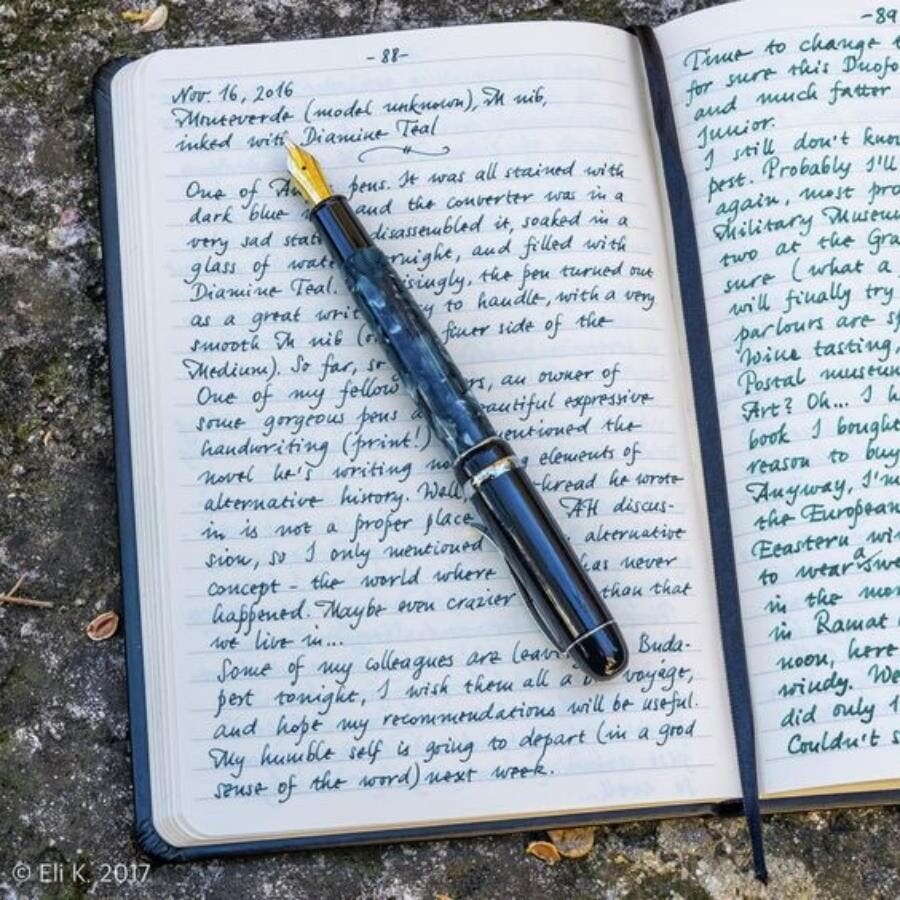 -88-
Nov. 16, 2016
Monteverde (model unknown), M nib,
inked with Diamine Teal
One of pens. It was all stained with
dark blue and the converter was in a
very sad state disassembled it, soaked in a
glass of water and filled with
Diamine Teal. the pen turned out
as a great to handle, with a very
smooth M nib finer side of the
Medium). So far, so
One of my fellow an owner of
some gorgeous pens expressive
handwriting (print!) the
novel he's writing elements of
alternative history. Well, thread he wrote
in is not a proper place AH discus-
sion, so I only mentioned alternative
concept - the world where has never
happened. Maybe even crazier than that
we live in...
Some of my colleagues are Buda-
pest tonight, I wish them all a voyage,
and hope my recommendations will be useful.
My humble self is going to depart (in a good
sense of the word) next week.
-89
Time to change
for sure this Duofo
and much fatter
Junior.
I still don't know
pest. Probably I'll
again, most pro
Military Museum
two at the Gra
sure (what a
will finally try
parlours are sp
Wine tasting,
Postal museum
Art? Oh... I h
book I bought
reason to buy
Anyway, I'm
the European
Eeastern win
to wear a swe
in the mor
in Ramat
noon, here
windy. We
did only 1
Couldn't s
© Eli K. 2017